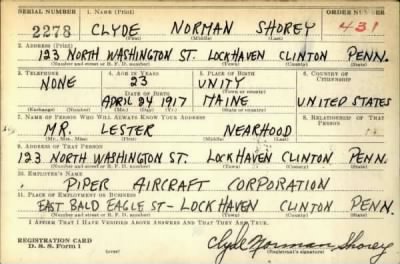 SERIAL NUMBER 1. NAME (Print) ORDER NUMBER
2278 CLYDE NORMAN SHOREY 431
(First) (Middle) (Last)
2. ADDRESS (Print)
123 NORTH WASHINGTON ST. LOCK HAVEN CLINTON PENN.
(Number and street or R. F. D. number) (Town) (County) (State)
3. TELEPHONE 4. AGE IN YEARS 5. PLACE OF BIRTH 6. COUNTRY OF CITIZENSHIP
NONE 23 UNITY
DATE OF BIRTH
APRIL 24 1917 MAINE UNITED STATES
(Exchange) (Number) (Mo.) (Day) (Yr.) (State or country)
7. NAME OF PERSON WHO WILL ALWAYS KNOW YOUR ADDRESS 8. RELATIONSHIP OF THAT PERSON
MR. LESTER NEARHOOD
(Mr., Mrs., Miss) (First) (Middle) (Last)
9. ADDRESS OF THAT PERSON
123 NORTH WASHINGTON ST. LOCK HAVEN CLINTON PENN.
(Number and street or R. F. D. number) (Town) (County) (State)
10. EMPLOYER'S NAME
PIPER AIRCRAFT CORPORATION
11. PLACE OF EMPLOYMENT OR BUSINESS
EAST BALD EAGLE ST - LOCK HAVEN CLINTON PENN.
(Number and street or R. F. D. number) (Town) (County) (State)
I AFFIRM THAT I HAVE VERIFIED ABOVE ANSWERS AND THAT THEY ARE TRUE.
REGISTRATION CARD
D. S. S. Form 1
Clyde Norman Shorey
(Registrant's signature)